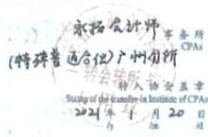 永拓会计师 事务所
CPAs
(特殊普通合伙)广州分所
转入协会盖章
Stamp of the transfer-in Institute of CPAs
2021年1月20日